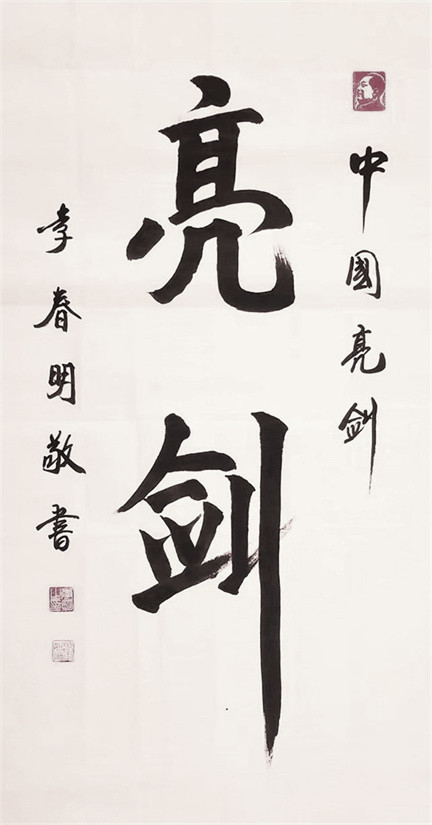 中國亮剑
亮剑
李春明敬書